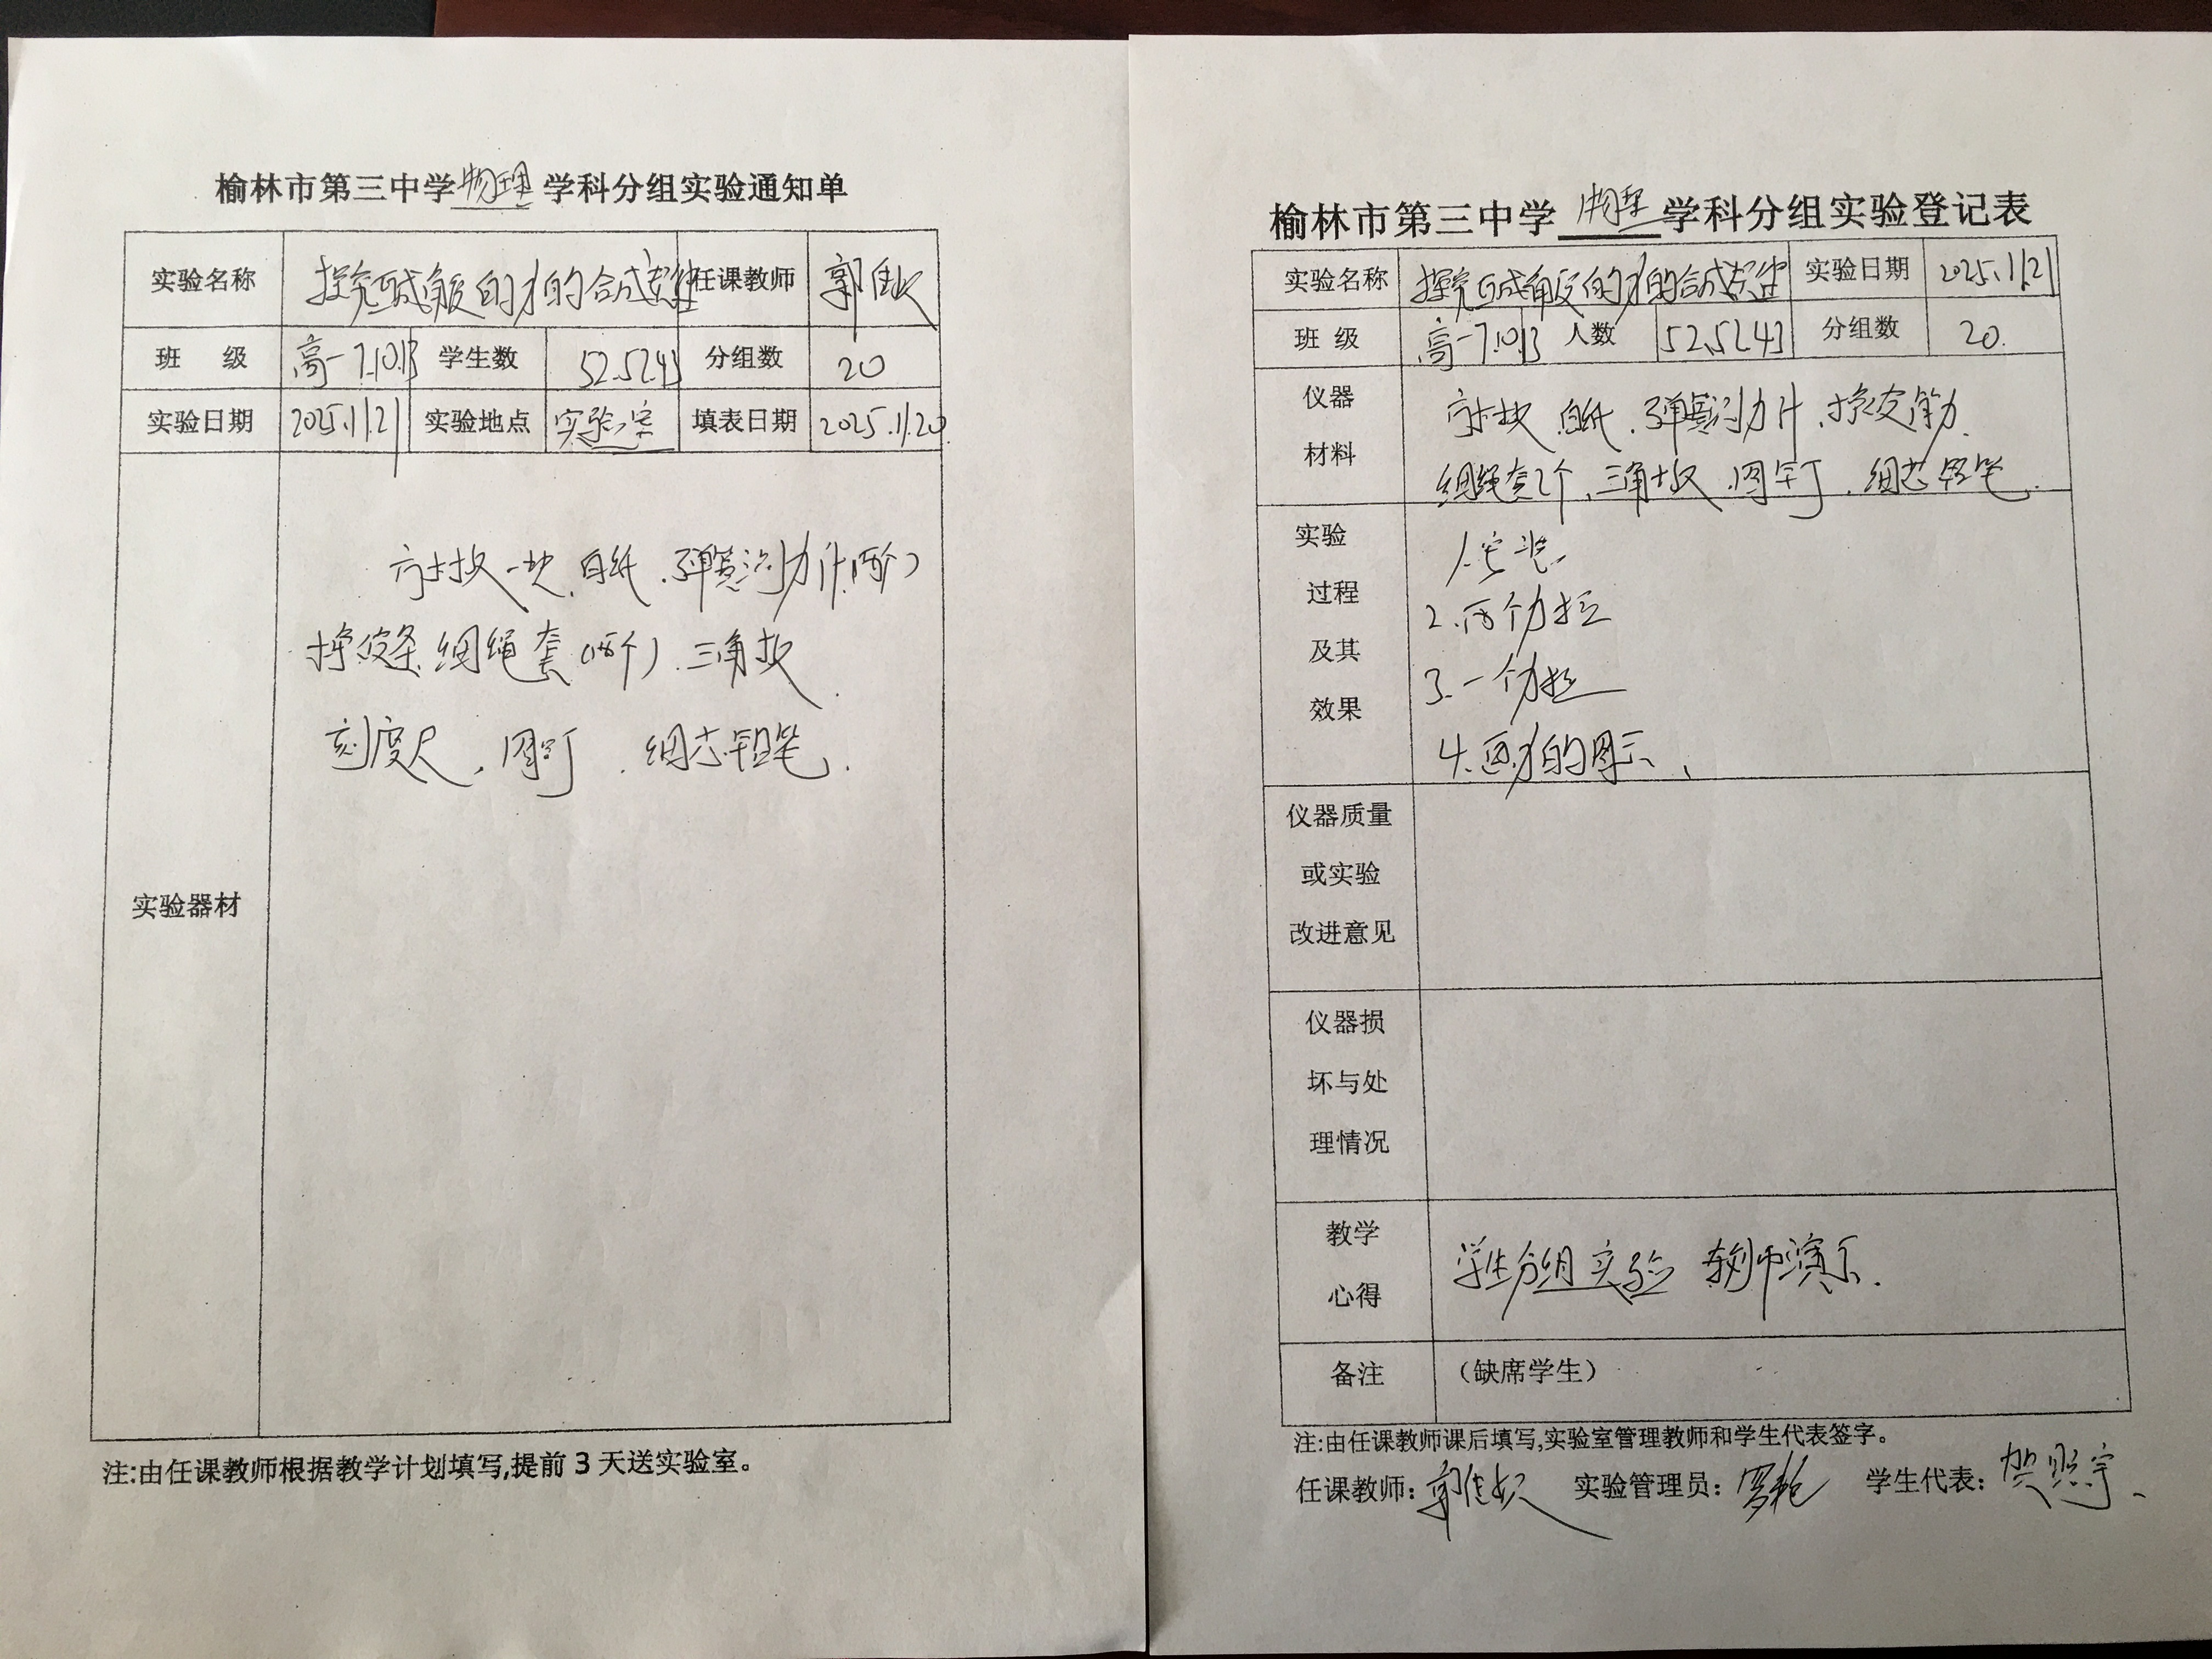 榆林市第三中学物理学科分组实验通知单
实验名称 探究互成角度的力的合成规律 任课教师 郭佳
班 级 高一7.10.13 学生数 52.52.43 分组数 20
实验日期 2025.11.21 实验地点 实验室 填表日期 2025.11.20
实验器材
方木板一块、白纸、弹簧测力计(两个)
橡皮条、细绳套(两个)、三角板、
刻度尺、图钉、细芯铅笔.
注:由任课教师根据教学计划填写,提前3天送实验室。
榆林市第三中学 物理 学科分组实验登记表
实验名称 探究互成角度的力的合成规律 实验日期 2025.11.21
班 级 高一7.10.13 人数 52.52.43 分组数 20.
仪器
材料
方木块、白纸、弹簧测力计、橡皮筋、
细绳套2个、三角板、图钉、细芯铅笔.
实验
过程
及其
效果
1.安装
2.两个力拉
3.一个力拉
4.画力的图示、
仪器质量
或实验
改进意见
仪器损
坏与处
理情况
教学
心得
学生分组实验 教师演示.
备注 (缺席学生)
注:由任课教师课后填写,实验室管理教师和学生代表签字。
任课教师: 郭佳 实验管理员: 罗艳 学生代表: 贺照宇